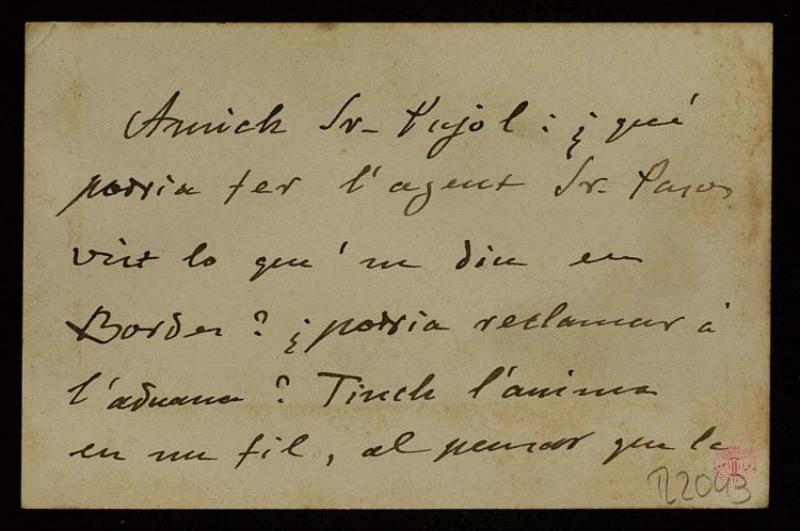 Amich Sr. Pujol: ¿qué
podria fer l'agent Sr. Pasos
vist lo que'm diu en
Bordes? ¿podria reclamar á
l'aduana? Tinch l'anima
en un fil, al pensar que la
R2043